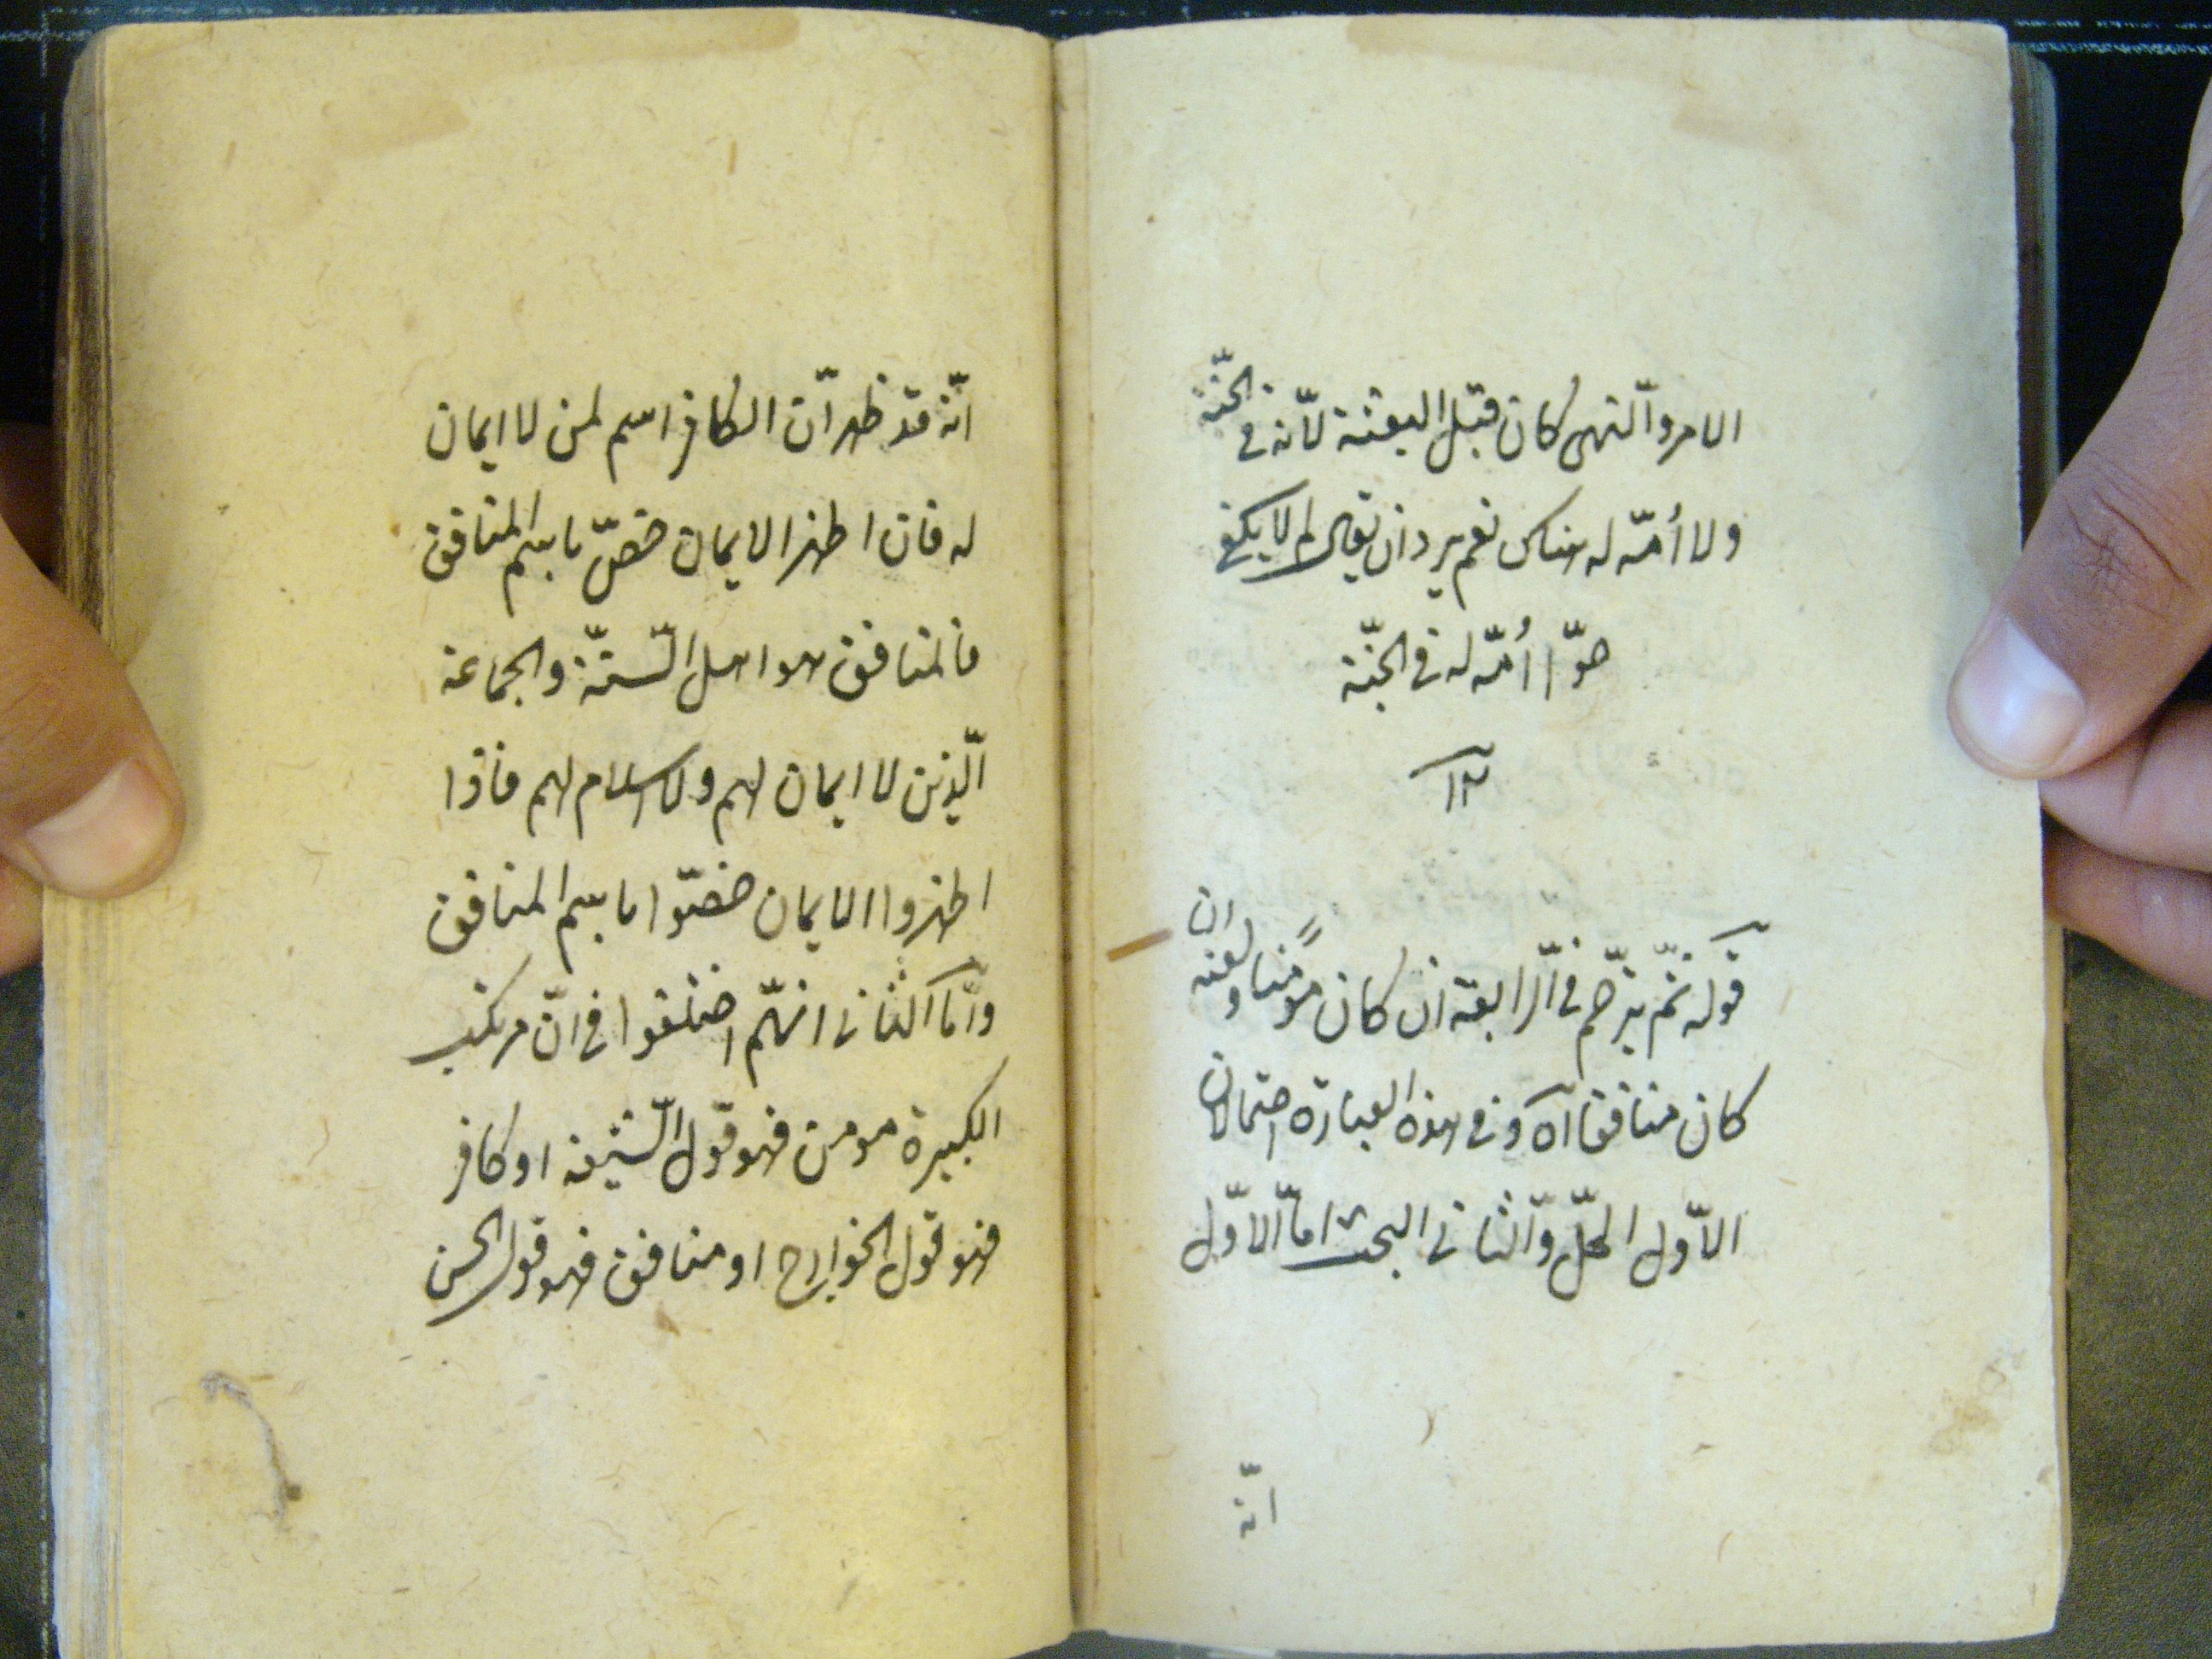 الامر والنهى كان قبل البعثة لأنه فى الجنّة
ولا أمّة له هناك نعم يرد ان يقال لم لا يكفى
حوّا أُمّة له فى الجنّة
١٢
قوله ثمّ يترحّم فى الرّابعة ان كان مؤمنا ولعنه ان
كان منافقا آه وفى هذه العبارة احتمالان
الاوّل الحلّ والثانى البحث امّا الاوّل
انّه
انّه قد ظهر انّ الكافر اسم لمن لا ايمان
له فان اظهر الايمان خصّ باسم المنافق
فالمنافق هو اهل السّنّة والجماعة
الّذين لا ايمان لهم ولا اسلام لهم فاذا
اظهروا الايمان خصّوا باسم المنافق
وامّا الثانى انهّم اختلفوا فى انّ مرتكب
الكبيرة مومن فهو قول الشّيعة او كافر
فهو قول الخوارج او منافق فهو قول الحسن